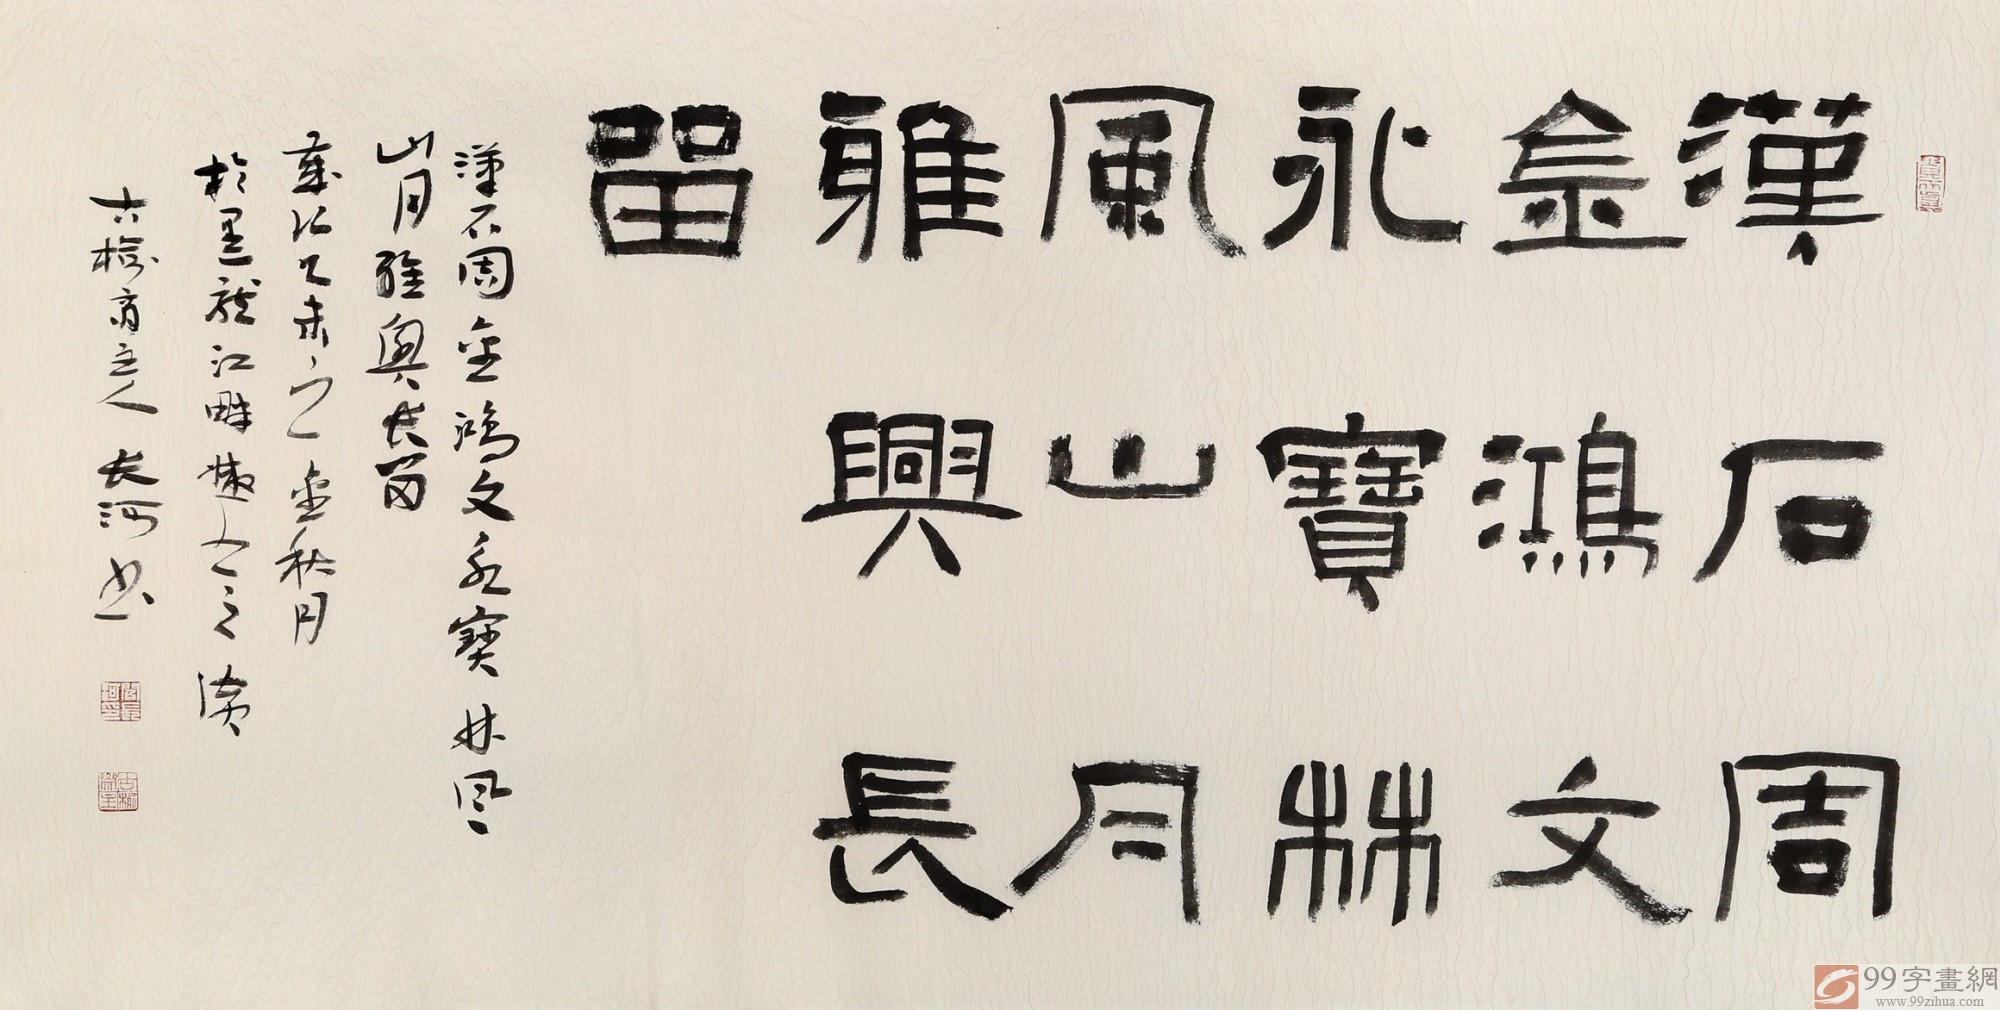 漢石周
金鴻文
永寶林
風山月
雅興長
留
漢石周金鴻文永寶林風
山月雅興長留
歲次乙未之金秋月
於黑龍江畔
古榆斎主人長河书
99字畫網
www.99zihua.com